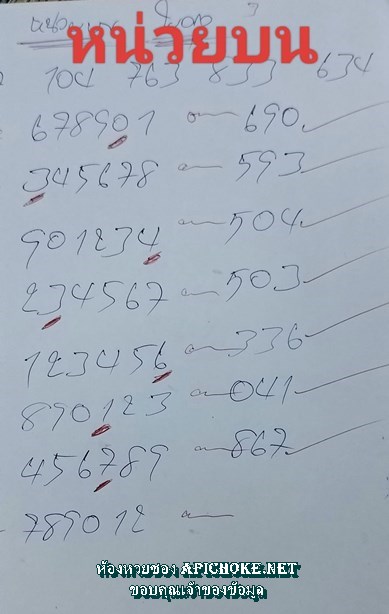 หน่วยบน
3
104 763 833 634
678901 690
345678 593
901234 504
234567 503
123456 336
890123 041
456789 867
789012
ห้องหวยซอง APICHOKE.NET
ขอบคุณเจ้าของข้อมูล